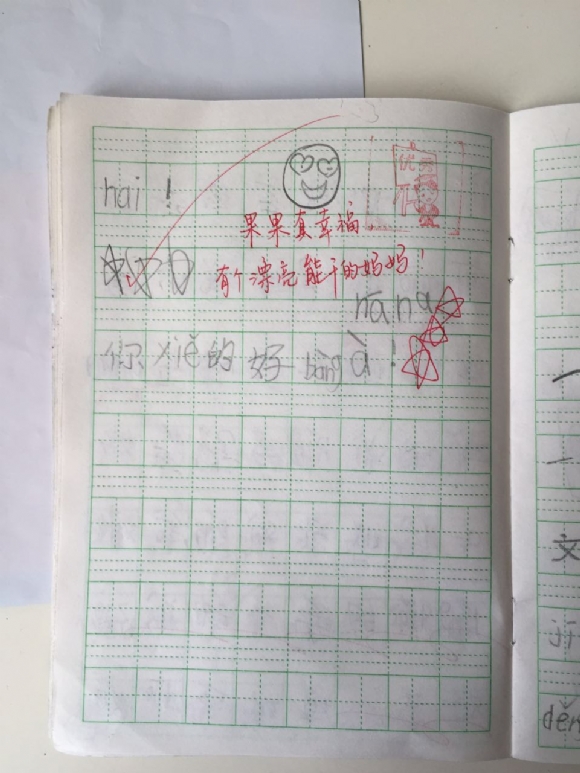 hai！
优
果果真幸福，
有个漂亮能干的妈妈！
nana
你xiě的好bàng à！
文
děn